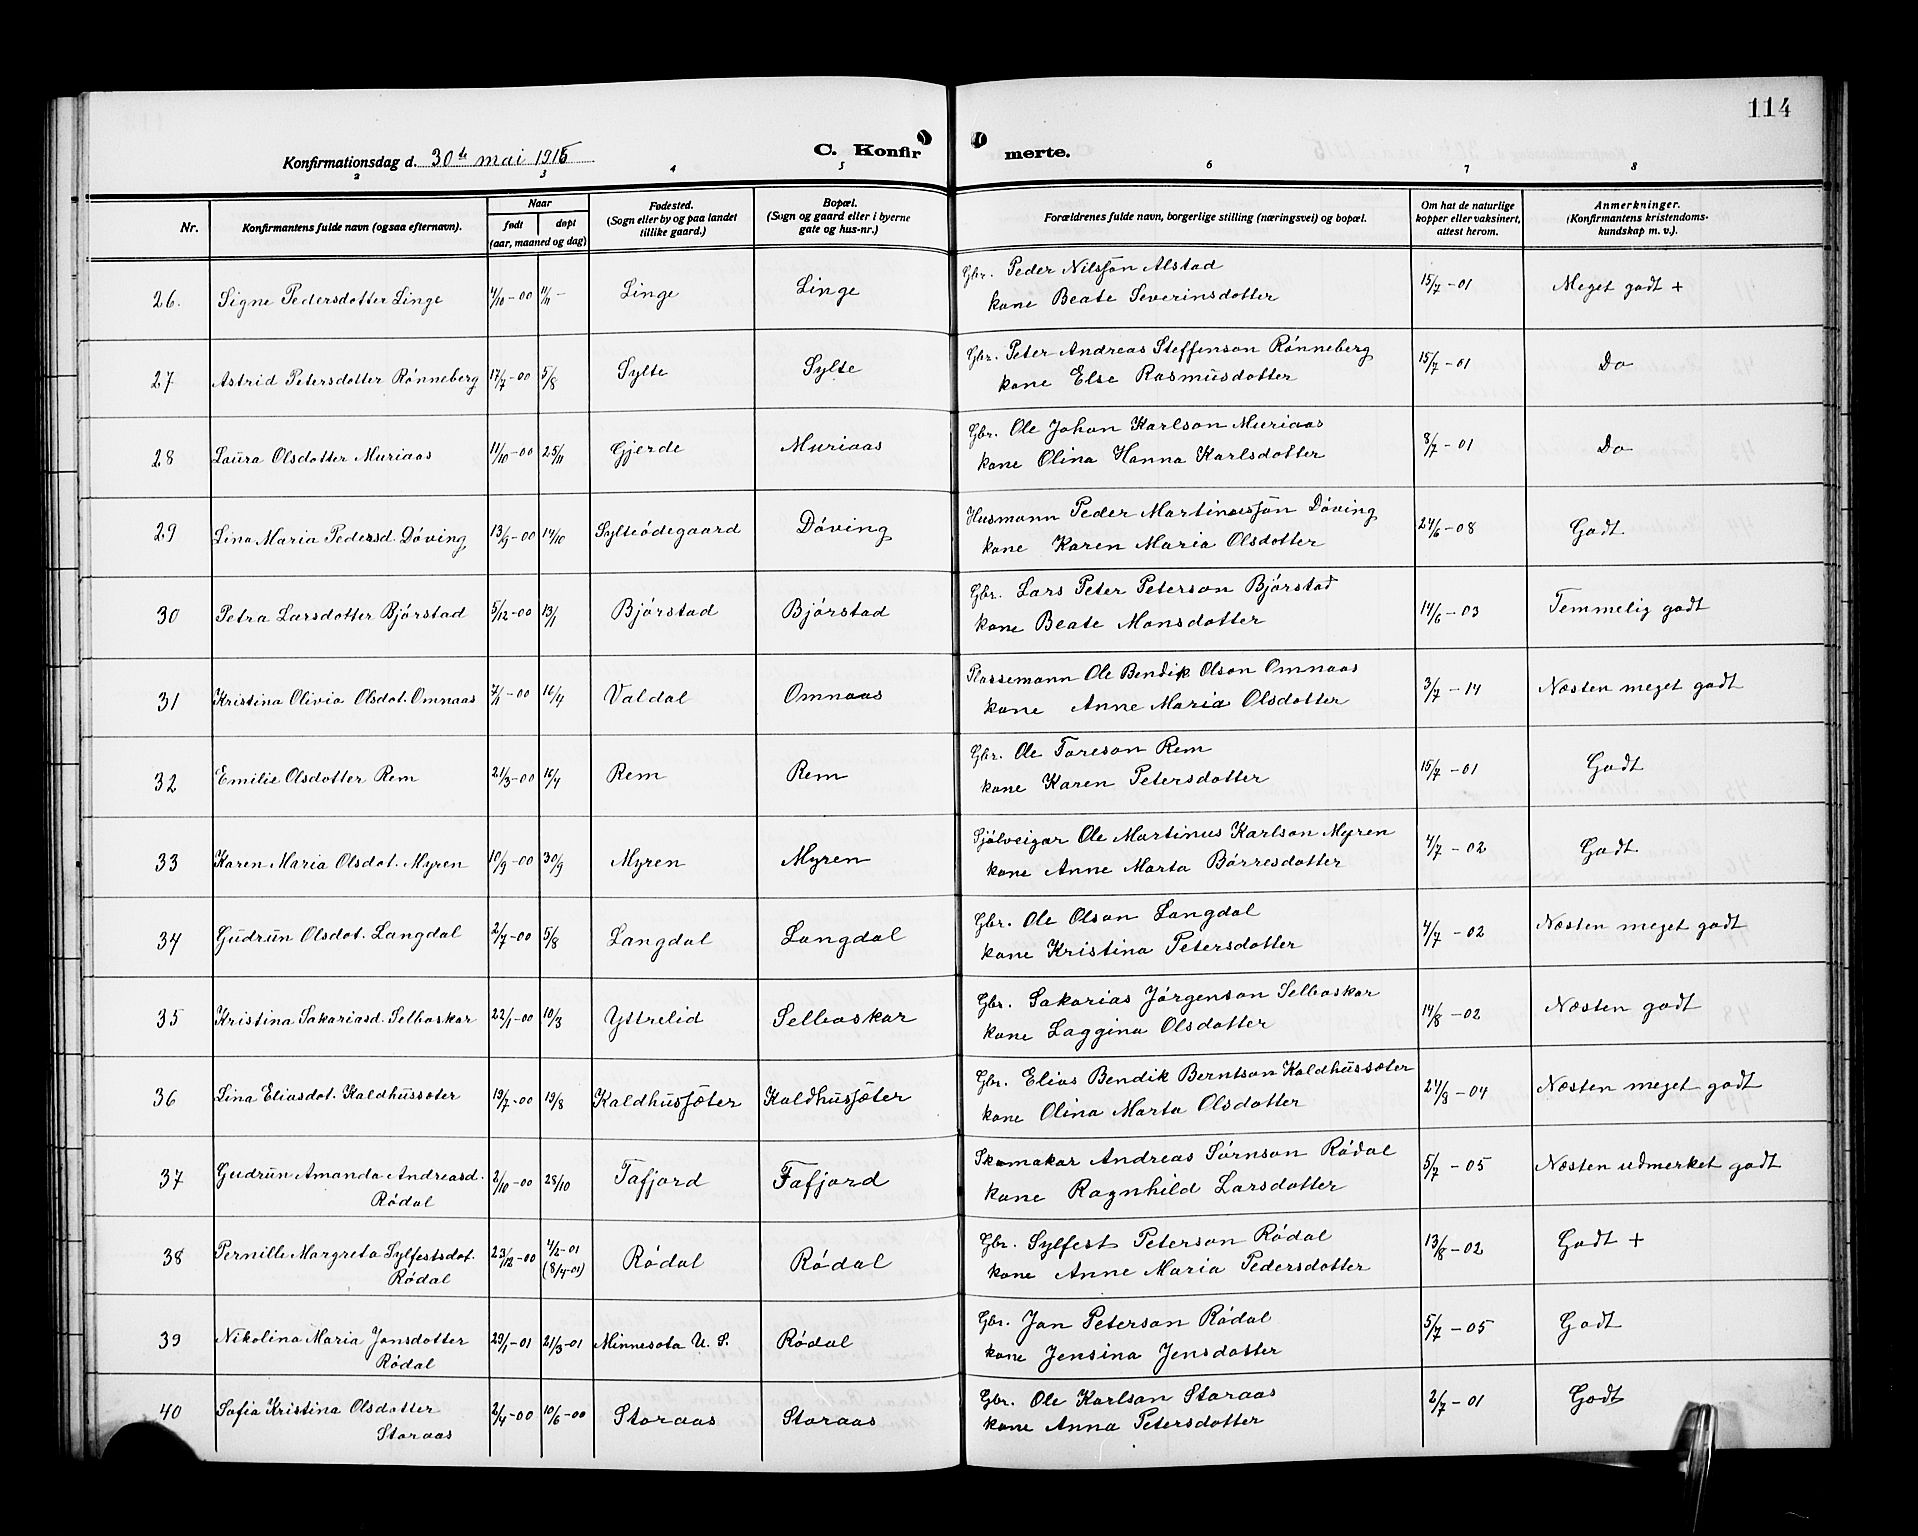 114
Konfirmationsdag d. 30te mai 1915
C. Konfirmerte.
2 3 4 5 6 7 8
Nr.
Konfirmantens fulde navn (ogsaa efternavn).
Naar
født
døpt
(aar, maaned og dag)
Fødested.
(Sogn eller by og paa landet
tillike gaard.)
Bopæl.
(Sogn og gaard eller i byerne
gate og hus-nr.)
Forældrenes fulde navn, borgerlige stilling (næringsvei) og bopæl.
Om hat de naturlige
kopper eller vaksinert,
attest herom.
Anmerkninger.
(Konfirmantens kristendoms-
kundskap m. v.).
26. Signe Pedersdotter Linge 4/10-00 11/11 - Linge Linge Gbr. Peder Nilsson Alstad 15/7-01 Meget godt +
kone Beate Severinsdotter
27 Astrid Petersdotter Rónneberg 17/7-00 5/8 Sylte Sylte Gbr. Peter Andreas Steffenson Rónneberg 15/7-01 Do
kone Else Rasmusdotter
28 Laura Olsdotter Muriaas 11/10-00 25/11 Gjerde Muriaas Gbr. Ole Johan Karlson Muriaas 8/7-01 Do
kone Olina Hanna Karlsdotter
29 Lina Maria Pedersd. Dóving 13/9-00 14/10 Sylteódegaard Dóving Husmann Peder Martinusson Dóving 24/6-08 Godt
kone Karen Maria Olsdotter
30 Petra Larsdotter Bjórstad 5/12-00 13/1 Bjórstad Bjórstad Gbr. Lars Peter Peterson Bjórstad 14/6-03 Temmelig godt
kone Beate Monsdotter
31 Kristina Olivia Olsdot. Omnaas 7/1-00 16/4 Valdal Omnaas Plassemann Ole Bendik Olson Omnaas 3/7-14 Næsten meget godt
kone Anne Maria Olsdotter
32 Emilie Olsdotter Rem 21/3-00 15/4 Rem Rem Gbr. Ole Toreson Rem 15/7-01 Godt
kone Karen Petersdotter
33 Karen Maria Olsdot. Myren 10/9-00 30/9 Myren Myren Sjólveigar Ole Martinus Karlson Myren 4/7-02 Godt
kone Anne Marta Bórresdotter
34 Gudrun Olsdot. Langdal 2/7-00 5/8 Langdal Langdal Gbr. Ole Olson Langdal 4/7-02 Næsten meget godt
kone Kristina Petersdotter
35 Kristina Sakariasd. Selboskar 22/1-00 10/3 Yttrelid Selboskar Gbr. Sakarias Jórgenson Selboskar 14/8-02 Næsten godt
kone Laggina Olsdotter
36 Lina Eliasdot. Kaldhussæter 19/7-00 19/8 Kaldhussæter Kaldhussæter Gbr. Elias Bendik Berntson Kaldhussæter 24/9-04 Næsten meget godt
kone Olina Marta Olsdotter
37 Gudrun Amanda Andreasd. 2/10-00 28/10 Tafjord Tafjord Skomakar Andreas Sórnson Ródal 5/7-05 Næsten udmerket godt
Ródal kone Ragnhild Larsdotter
38 Pernille Margreta Sylfestsdot. 23/12-00 4/2-01 Ródal Ródal Gbr. Sylfest Peterson Ródal 13/8-02 Godt +
Ródal (8/4-01) kone Anne Maria Pedersdotter
39 Nikolina Maria Jonsdotter 29/1-01 21/3-01 Minnesota U. S. Ródal Gbr. Jon Peterson Ródal 5/7-05 Godt
Ródal kone Jensina Jensdotter
40 Sofia Kristina Olsdotter 2/4-00 10/6-00 Storaas Storaas Gbr. Ole Karlson Storaas 2/7-01 Godt
Storaas kone Anna Petersdotter